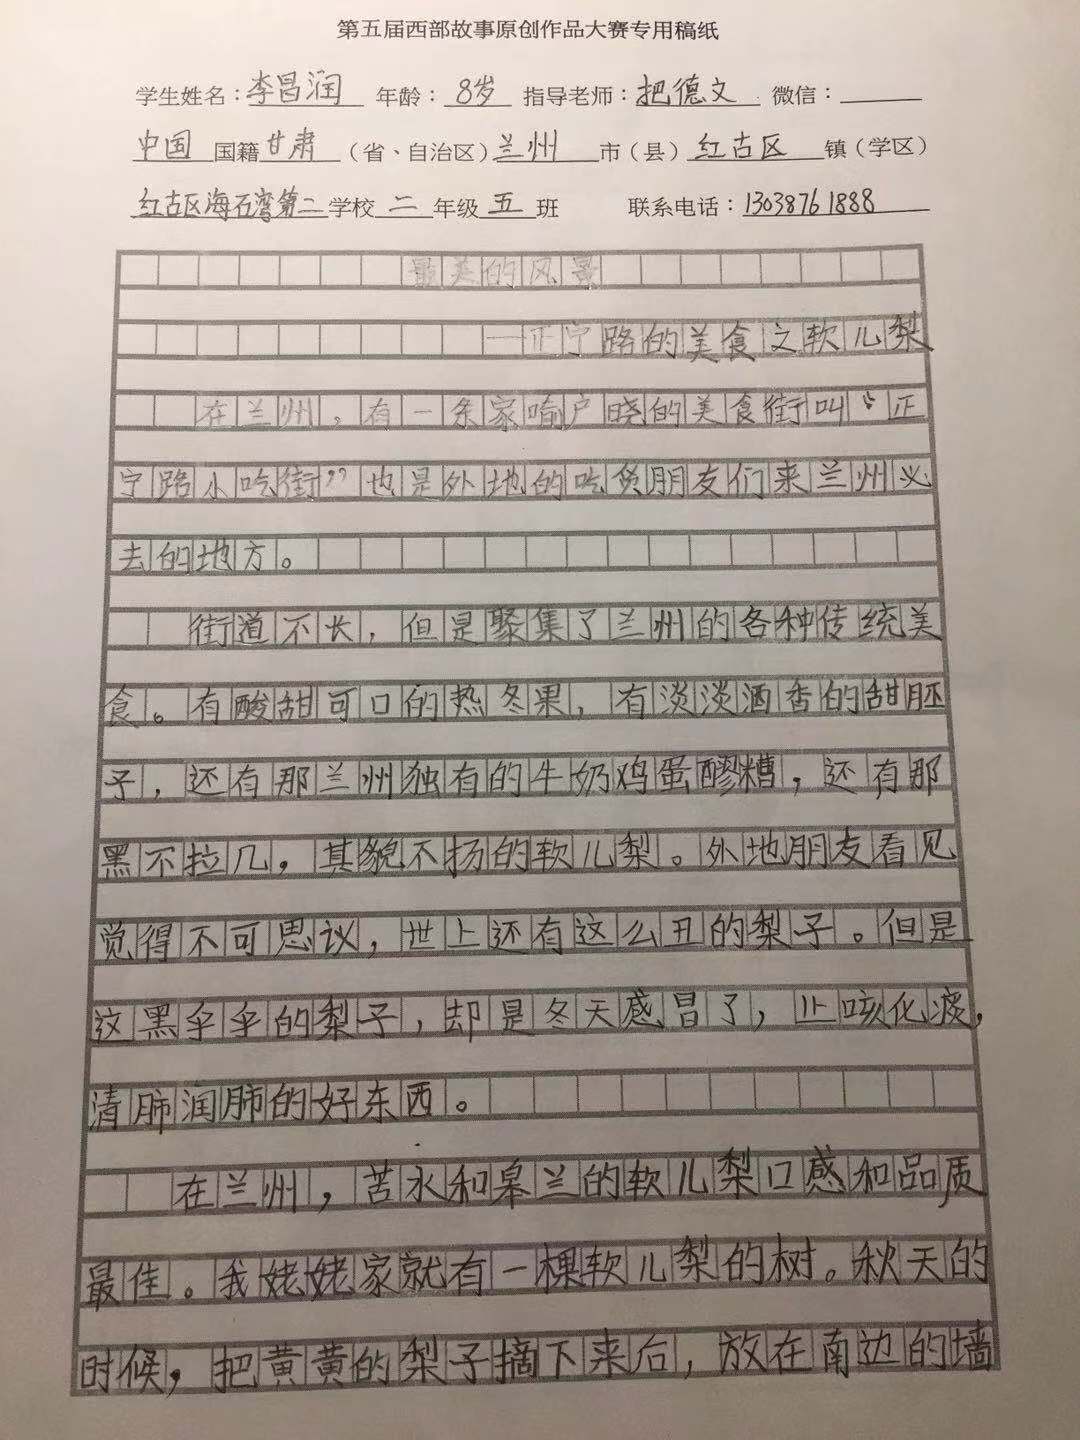 第五届西部故事原创作品大赛专用稿纸
学生姓名：李昌润 年龄：8岁 指导老师：把德文 微信：
中国国籍甘肃（省、自治区）兰州市（县）红古区镇（学区）
红古区海石湾第二学校二年级五班 联系电话：13038761888
最美的风景
——正宁路的美食之软儿梨
在兰州，有一条家喻户晓的美食街叫“正
宁路小吃街”也是外地的吃货朋友们来兰州必
去的地方。
街道不长，但是聚集了兰州的各种传统美
食。有酸甜可口的热冬果，有淡淡酒香的甜胚
子，还有那兰州独有的牛奶鸡蛋醪糟，还有那
黑不拉几，其貌不扬的软儿梨。外地朋友看见
觉得不可思议，世上还有这么丑的梨子。但是
这黑伞伞的梨子，却是冬天感冒了，止咳化痰，
清肺润肺的好东西。
在兰州，苦水和皋兰的软儿梨口感和品质
最佳。我姥姥家就有一棵软儿梨的树。秋天的
时候，把黄黄的梨子摘下来后，放在南边的墙